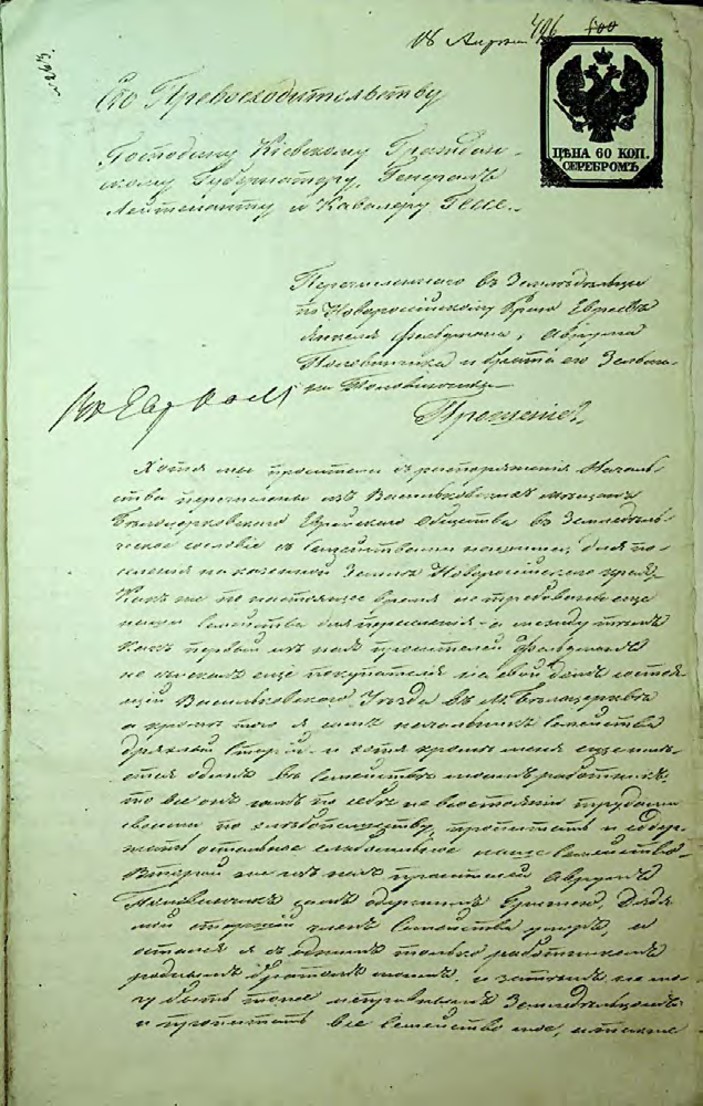 № 263.
18 Апреля 496 500
ЦѢНА 60 КОП.
СЕРЕБРОМЪ
Его Превосходительству
Господину Кіевскому Граждан-
скому Губернатору, Генералъ
Лейтенанту и Кавалеру Гессе.
Перечисленнаго въ Земледѣльцы
по Новороссійскому Краю Еврея
Янкеля Фельдмана, Абрума
Половинчика и брата его
Половинчика
Прошеніе.
Хотя мы просители распоряженія Началь-
ства перечислены изъ Васильковскихъ мѣщанъ
Бѣлоцерковскаго Еврейскаго Общества въ Земледѣль-
ческое сословіе съ Семействами нашими, для по-
селенія на казенной Землѣ Новороссійскаго края,
Какъ же по настоящее время не требованы еще
наши Семейства для переселенія, а между тѣмъ
Какъ первый изъ насъ просителей Фельдманъ
не сыскалъ еще покупателя на свой домъ состоя-
щій Васильковскаго Уѣзда въ М. Бѣлоцерквѣ
а кромѣ того я самъ начальникъ Семейства
дряхлый Старый и хотя кромѣ меня еще имѣ-
ется одинъ въ Семействѣ моемъ работникъ,
то все онъ самъ по себѣ не въ состояніи трудами
своими по хлѣбопашеству, пропитать и содер-
жать остальное наше Семейство.
Второй же изъ насъ просителей Абрумъ
Половинчикъ самъ одержимъ Дядя
мой старшій членъ Семейства умеръ, и
остался я съ однимъ только работникомъ
роднымъ братомъ моимъ, и затѣмъ не мо-
гу быть тоже исправнымъ Земледѣльцемъ
и пропитать все Семейство мое, а также